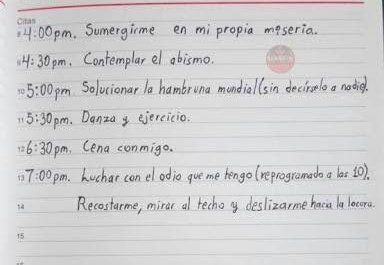 Citas
4:00pm. Sumergirme en mi propia miseria.
4:30pm. Contemplar el abismo.
10 5:00pm Solucionar la hambruna mundial (sin decírselo a nadie).
11 5:30pm. Danza y ejercicio.
12 6:30pm. Cena conmigo.
13 7:00pm. Luchar con el odio que me tengo (reprogramado a las 10).
14 Recostarme, mirar al techo y deslizarme hacia la locura.
15